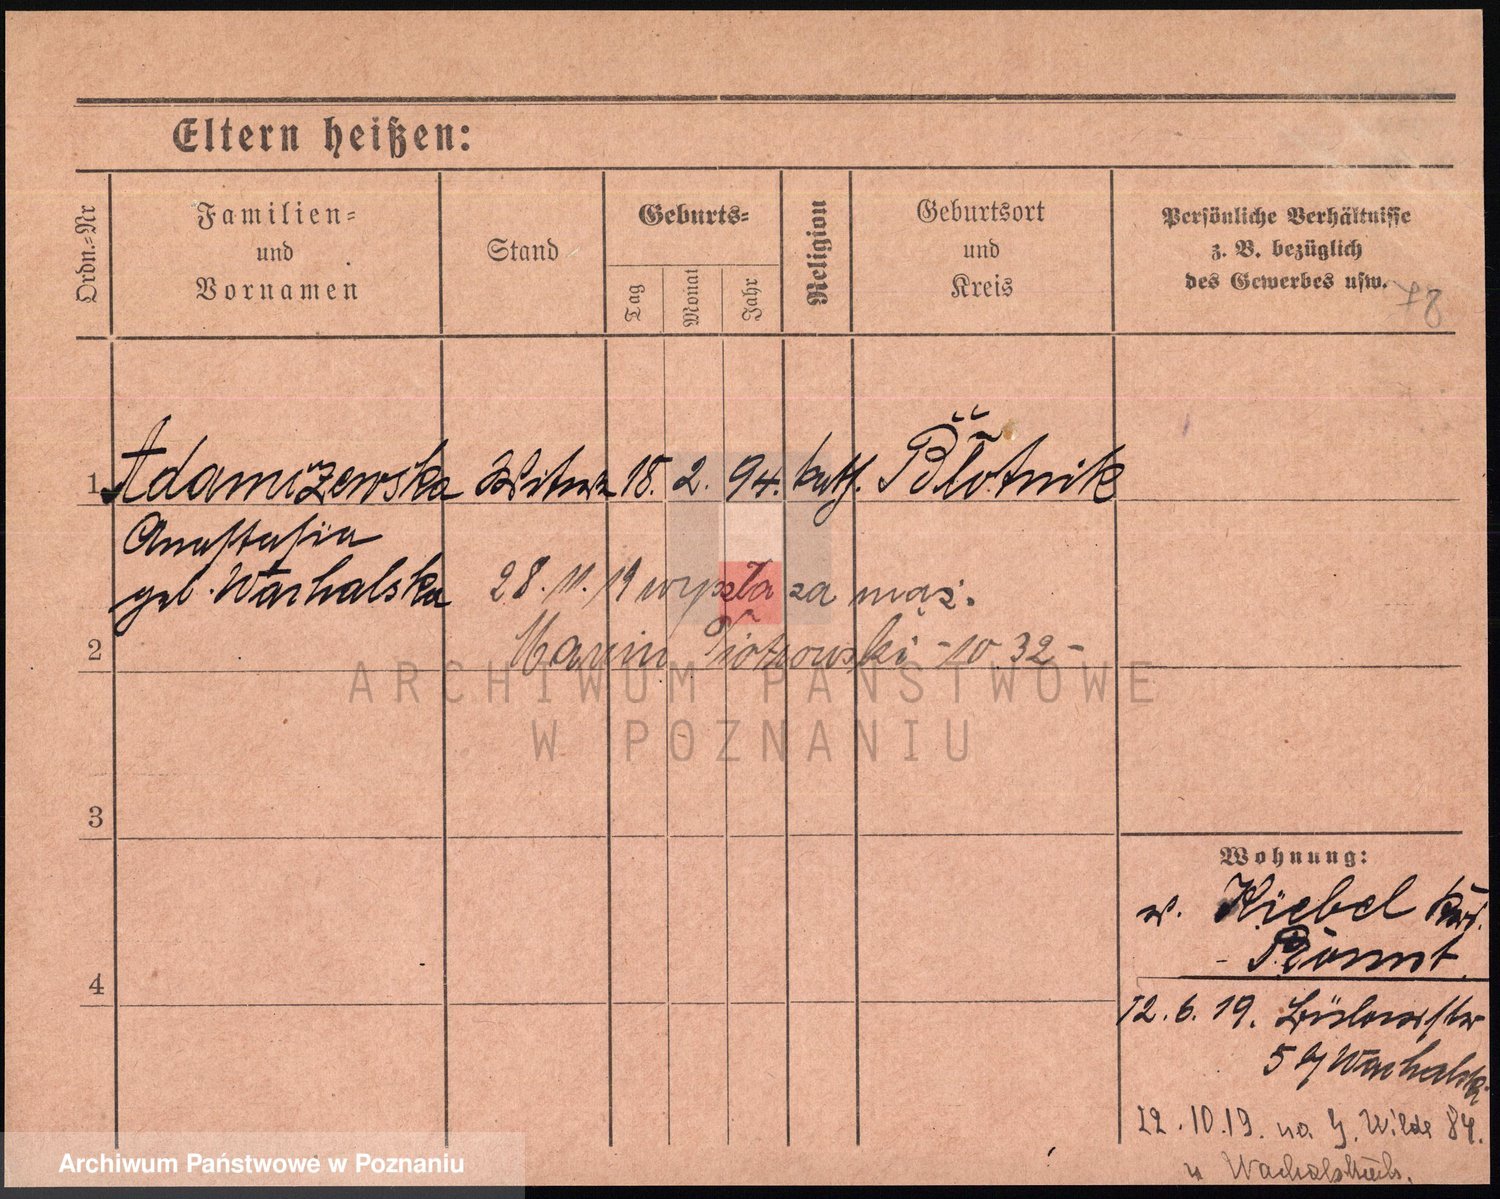 Eltern heißen:
Ordn.=Nr
Familien=
und
Vornamen
Stand
Geburts=
Tag
Monat
Jahr
Religion
Geburtsort
und
Kreis
Persönliche Verhältnisse
z. B. bezüglich
des Gewerbes usw.
78
1 Adamczewska 18. 2. 94. kath. Błotnik
Anastasia
geb. Wachalska
28.11.19 wyszła za mąż.
2 Marcin Piotrowski - 10 32 -
3
4
Wohnung:
v. Kiebel
12.6.19.
5 Wachalski
12.10.19. na G. Wilde 84.
u
ARCHIWUM PAŃSTWOWE
W POZNANIU
Archiwum Państwowe w Poznaniu